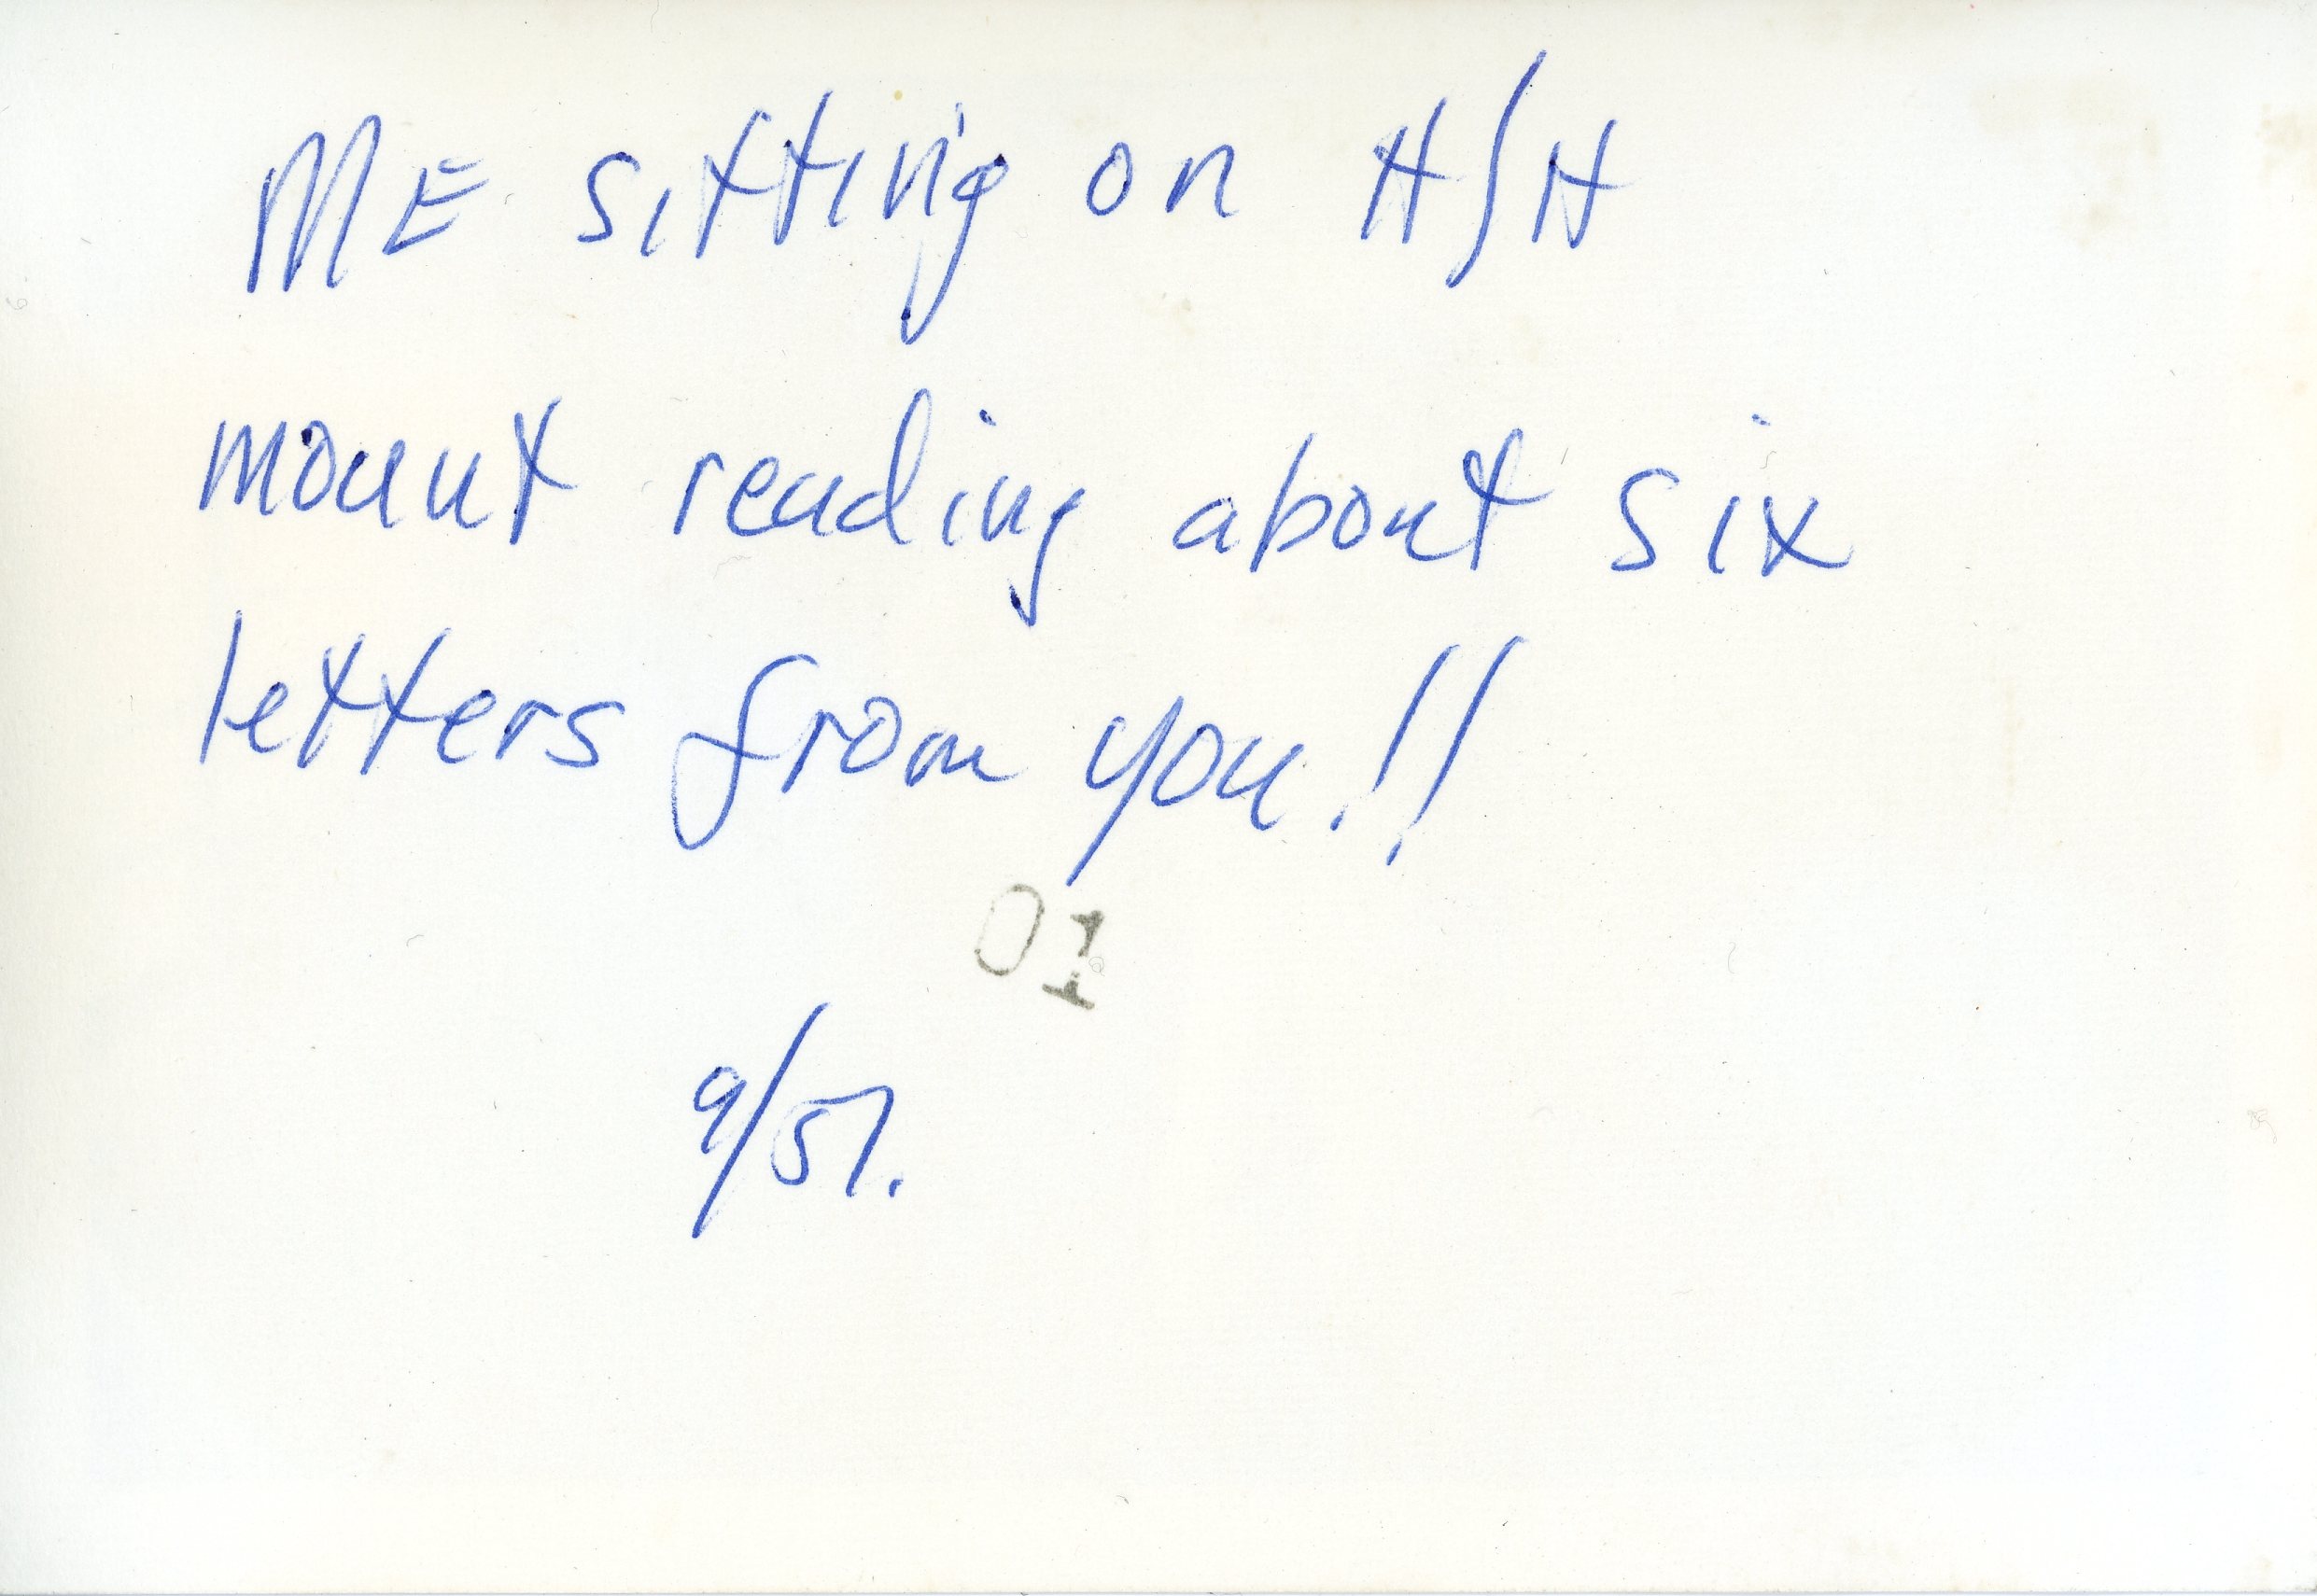 ME sitting on H/H
mount reading about six
letters from you!!
01
9/57.